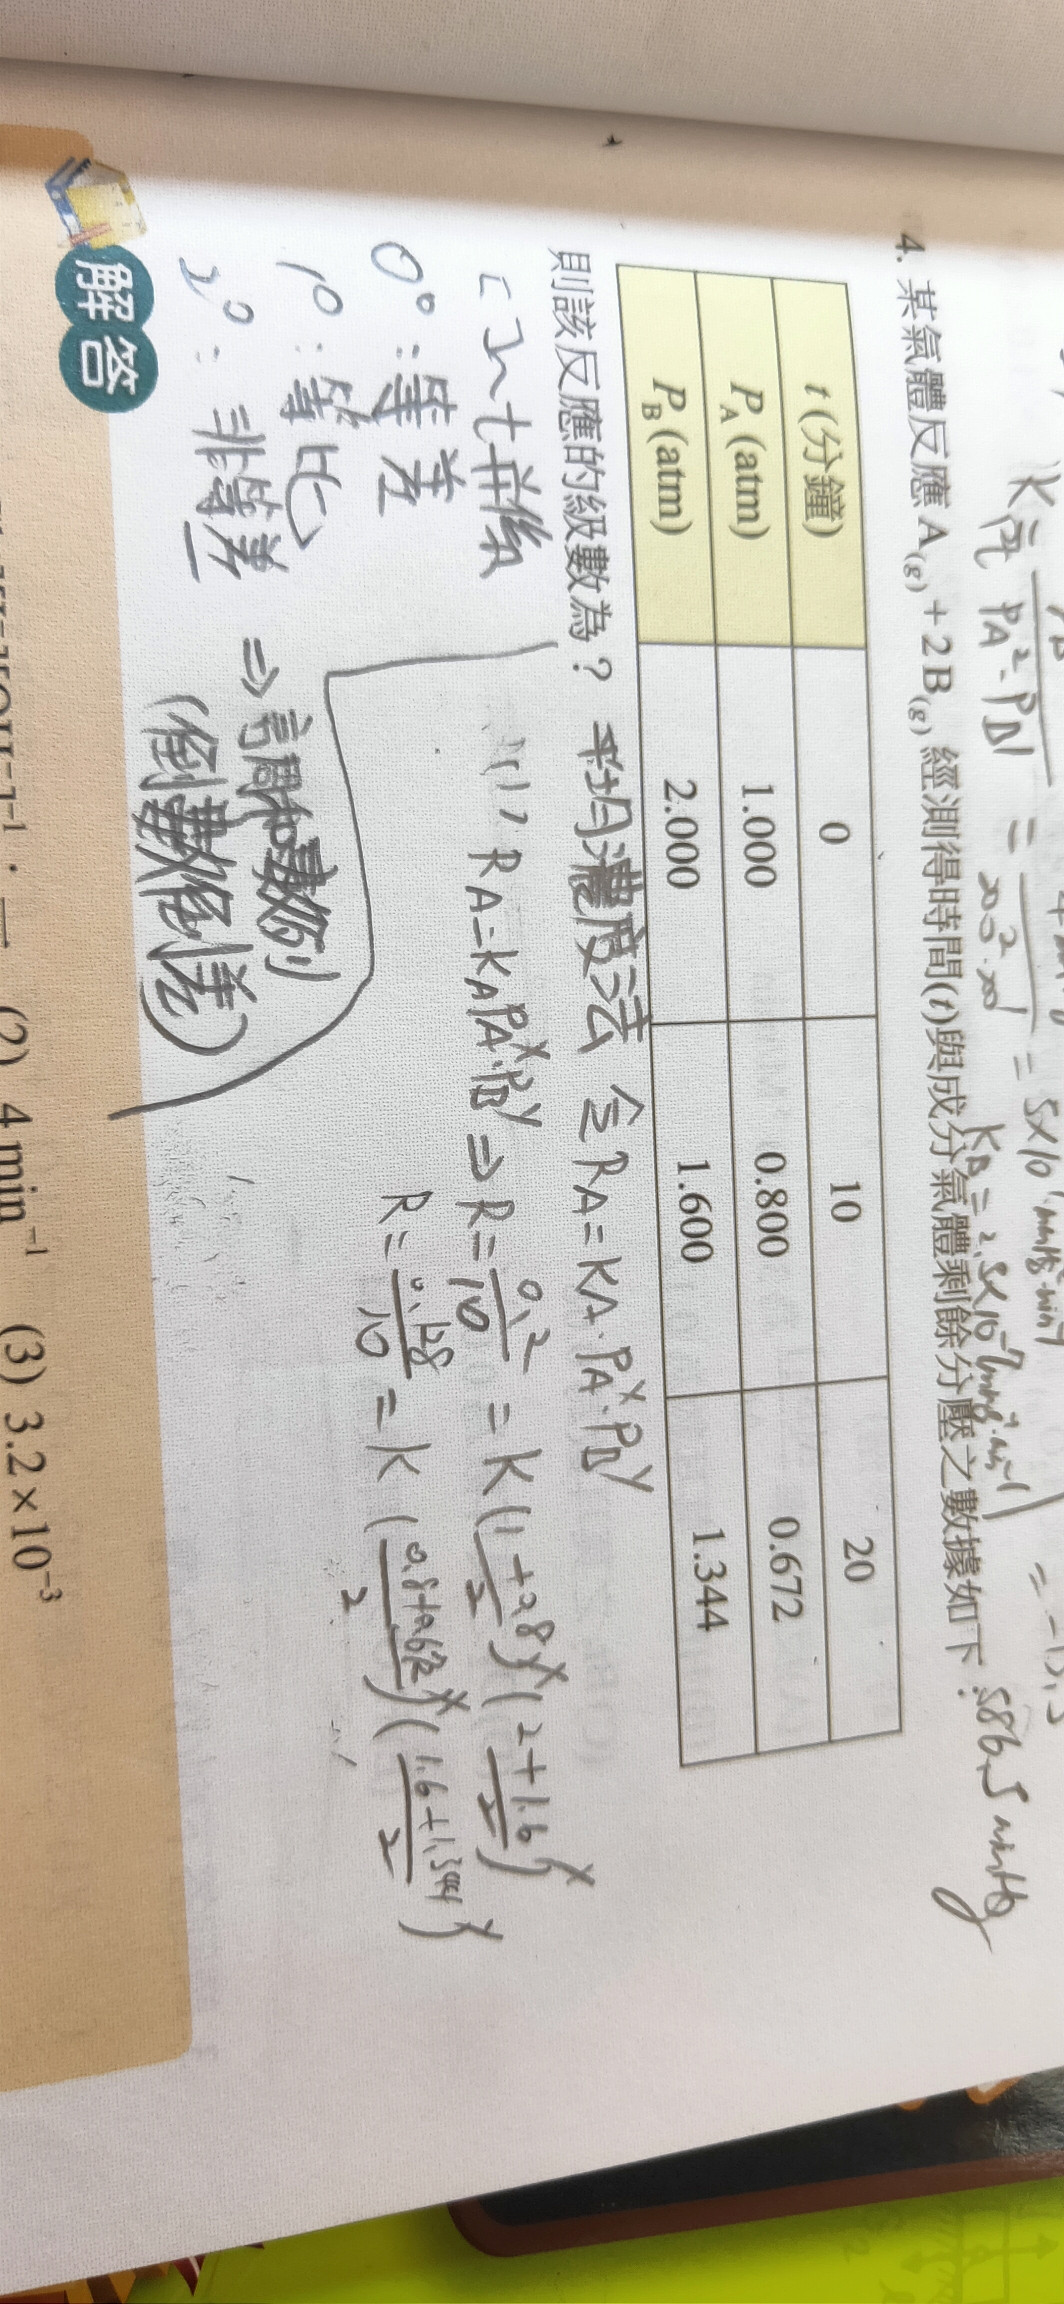 K = PA²·PB
4. 某氣體反應 A(g) + 2B(g) 經測得時間(t)與成分氣體剩餘分壓之數據如下：
t (分鐘) 0 10 20
PA (atm) 1.000 0.800 0.672
PB (atm) 2.000 1.600 1.344
則該反應的級數為？ 平均濃度法 令 RA = KA·PA^x·PB^y
(1) RA = kA PA^x·PB^y ⇒ R = 0.2/10 = K((1+0.8)/2)^x((2+1.6)/2)^y
R = 0.128/10 = K((0.8+0.672)/2)^x((1.6+1.344)/2)^y
0°：等差
1°：等比
2°：非等差 ⇒ 調和數列
(倒數等差)
解答
(2) 4 min⁻¹ (3) 3.2×10⁻³